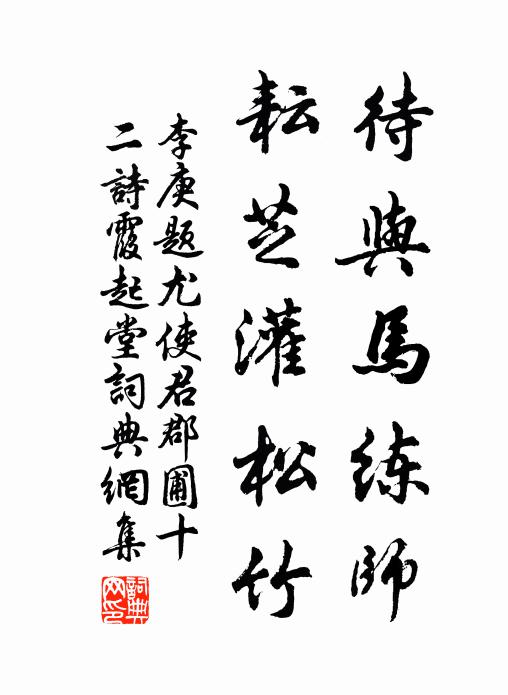 待與馬練師
耘芝灌松竹
李庚題尤使君郡圃十
二詩霞起堂詞典網集
詞典
网印